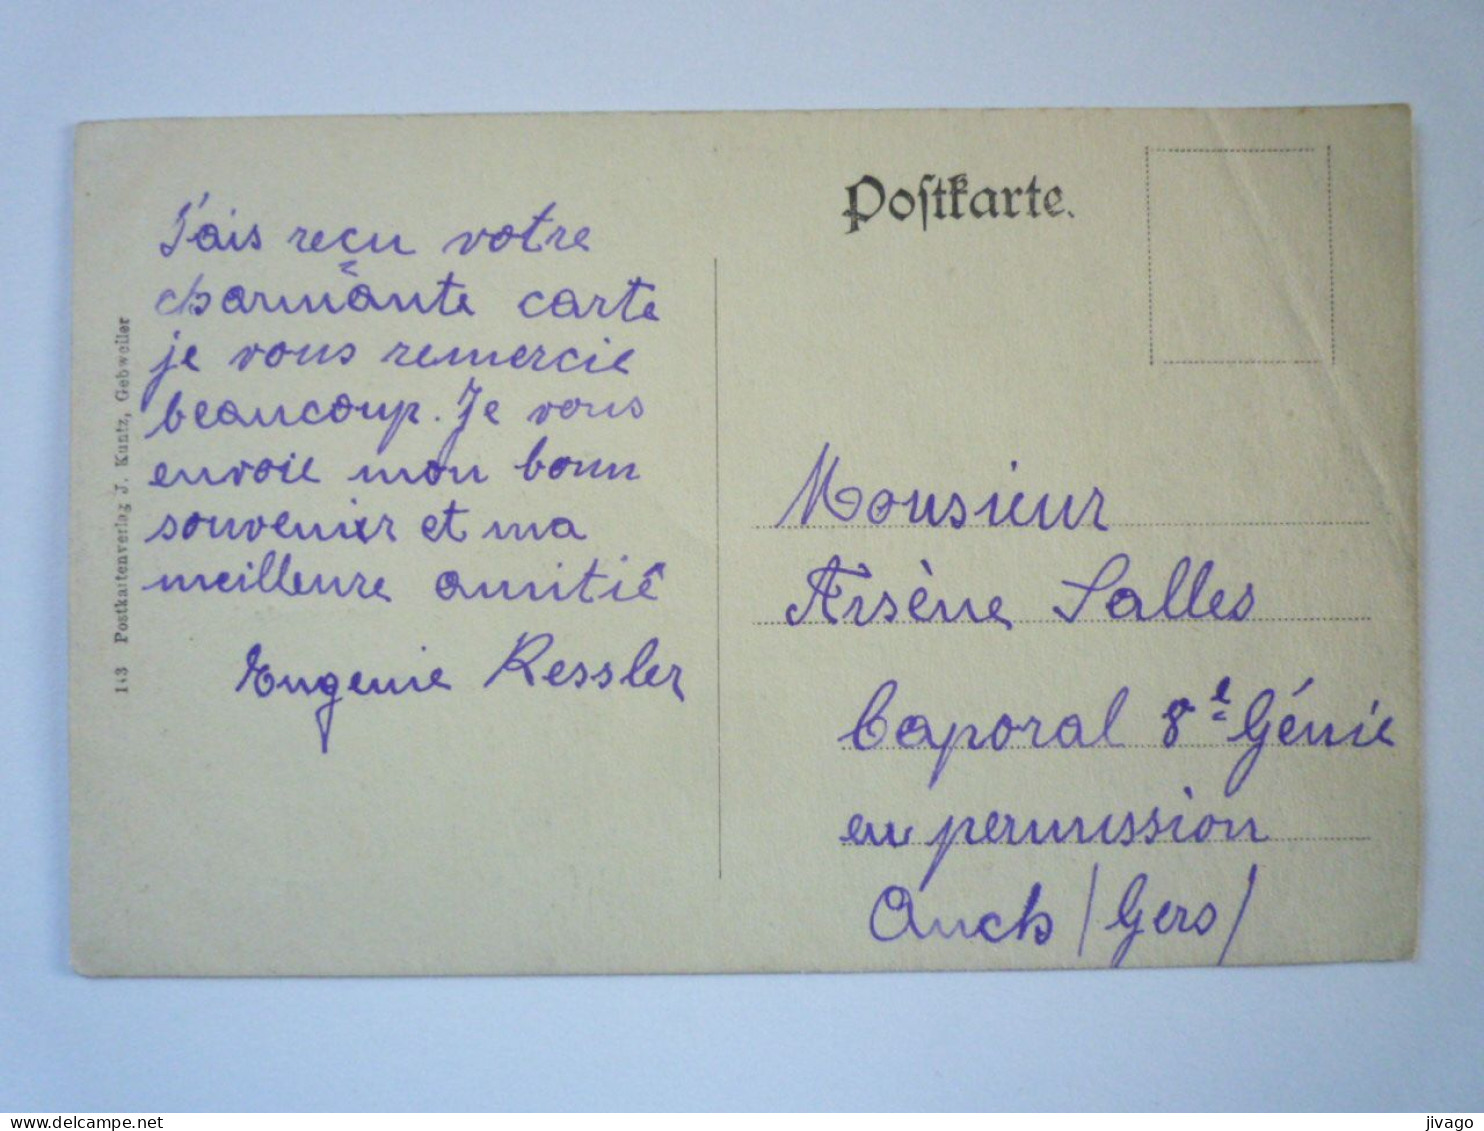 J'ais reçu votre
charmante carte
je vous remercie
beaucoup. Je vous
envoie mon bonn
souvenir et ma
meilleure amitié
Eugenie Kessler
143 Postkartenverlag J. Kuntz, Gebweiler
Postkarte.
Monsieur
Arsène Salles
Caporal 8e Génie
en permission
Auch (Gers)
www.delcampe.net
jivago